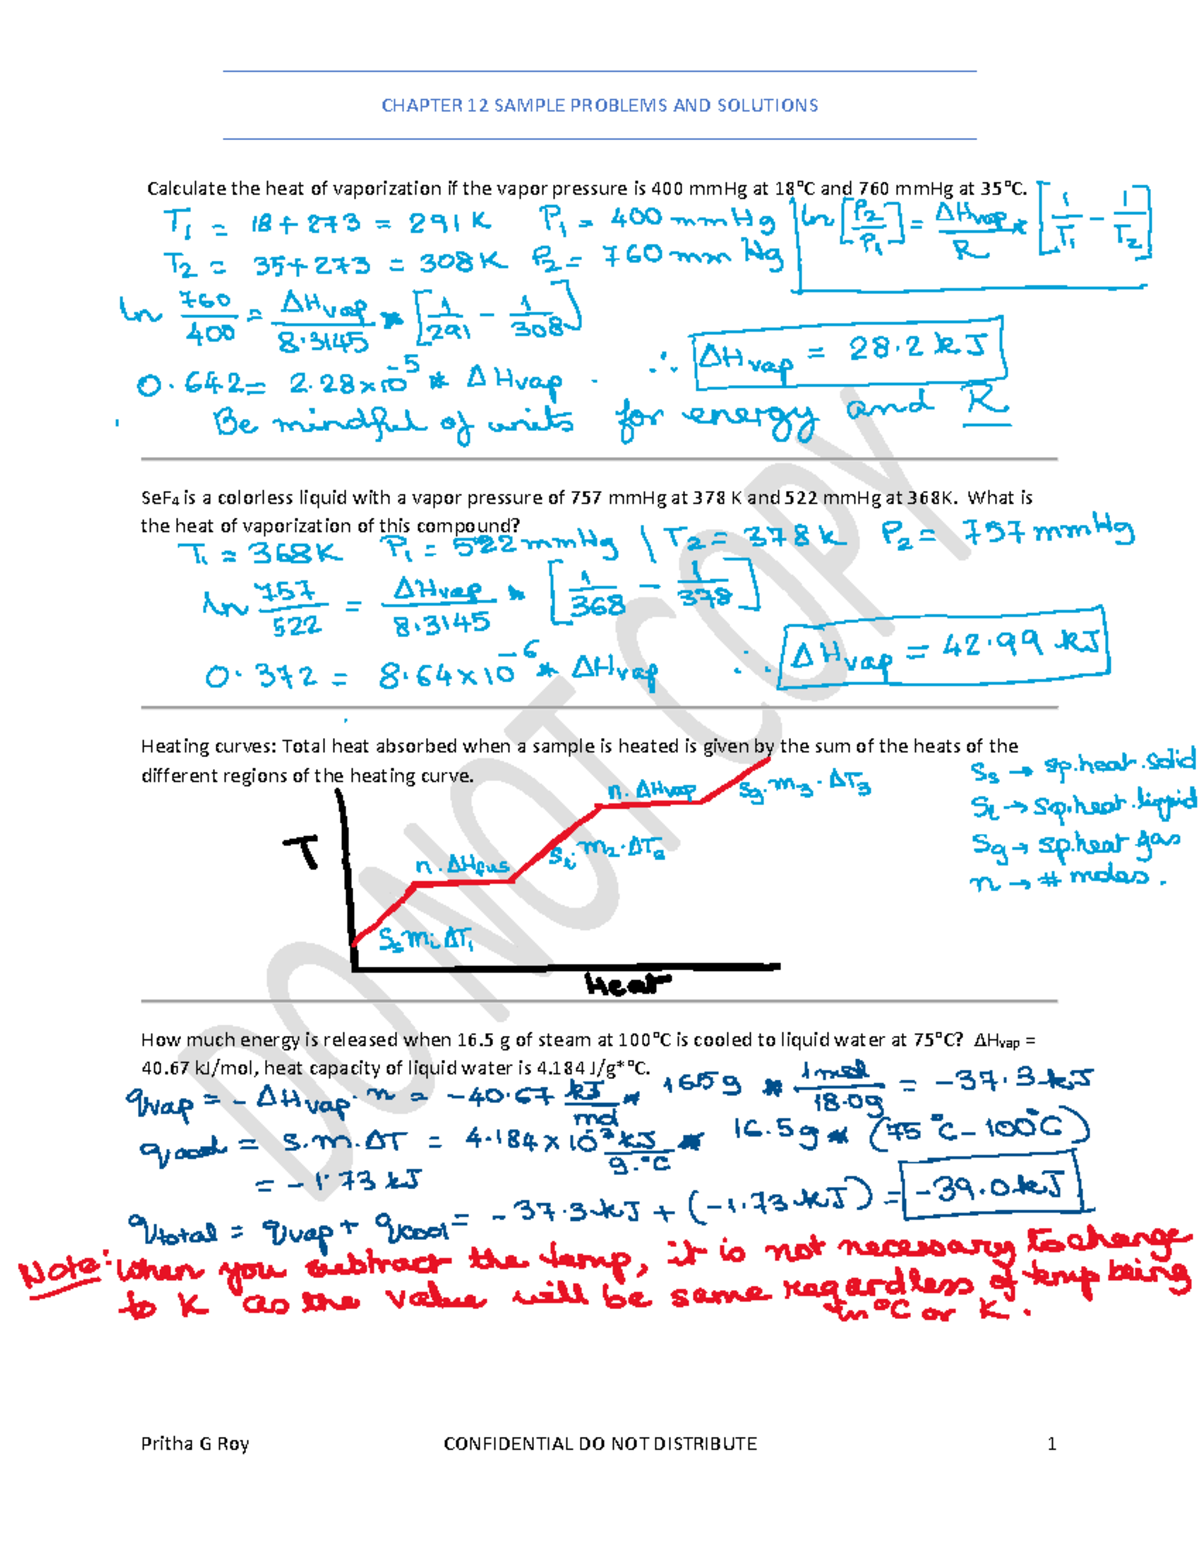 CHAPTER 12 SAMPLE PROBLEMS AND SOLUTIONS
Calculate the heat of vaporization if the vapor pressure is 400 mmHg at 18°C and 760 mmHg at 35°C.
T₁ = 18 + 273 = 291 K P₁ = 400 mmHg ln[P₂/P₁] = ΔHvap/R * [1/T₁ - 1/T₂]
T₂ = 35 + 273 = 308 K P₂ = 760 mm Hg
ln 760/400 = ΔHvap/8.3145 * [1/291 - 1/308]
0.642 = 2.28×10⁻⁵ * ΔHvap. ∴ ΔHvap = 28.2 kJ
Be mindful of units for energy and R
SeF₄ is a colorless liquid with a vapor pressure of 757 mmHg at 378 K and 522 mmHg at 368K. What is
the heat of vaporization of this compound?
T₁ = 368 K P₁ = 522 mmHg | T₂ = 378 K P₂ = 757 mmHg
ln 757/522 = ΔHvap/8.3145 * [1/368 - 1/378]
0.372 = 8.64×10⁻⁶ * ΔHvap ∴ ΔHvap = 42.99 kJ
Heating curves: Total heat absorbed when a sample is heated is given by the sum of the heats of the
different regions of the heating curve.
Sₛ → sp.heat.solid
n.ΔHvap Sg.m₃.ΔT₃
Sₗ → sp.heat.liquid
T
n.ΔHfus Sₗ.m₂.ΔT₂
Sg → sp.heat gas
n → # moles.
Sₛm₁ΔT₁
Heat
How much energy is released when 16.5 g of steam at 100°C is cooled to liquid water at 75°C? ΔHvap =
40.67 kJ/mol, heat capacity of liquid water is 4.184 J/g*°C.
qvap = - ΔHvap.n = -40.67 kJ/mol * 16.5g * 1 mol/18.0g = -37.3 kJ
qcool = S.m.ΔT = 4.184 × 10⁻³ kJ/g.°C * 16.5g * (75°C - 100°C)
= -1.73 kJ
qtotal = qvap + qcool = -37.3 kJ + (-1.73 kJ) = -39.0 kJ
Note: When you subtract the temp, it is not necessary to change
to K as the value will be same regardless of temp being
in °C or K.
Pritha G Roy CONFIDENTIAL DO NOT DISTRIBUTE 1
DO NOT COPY